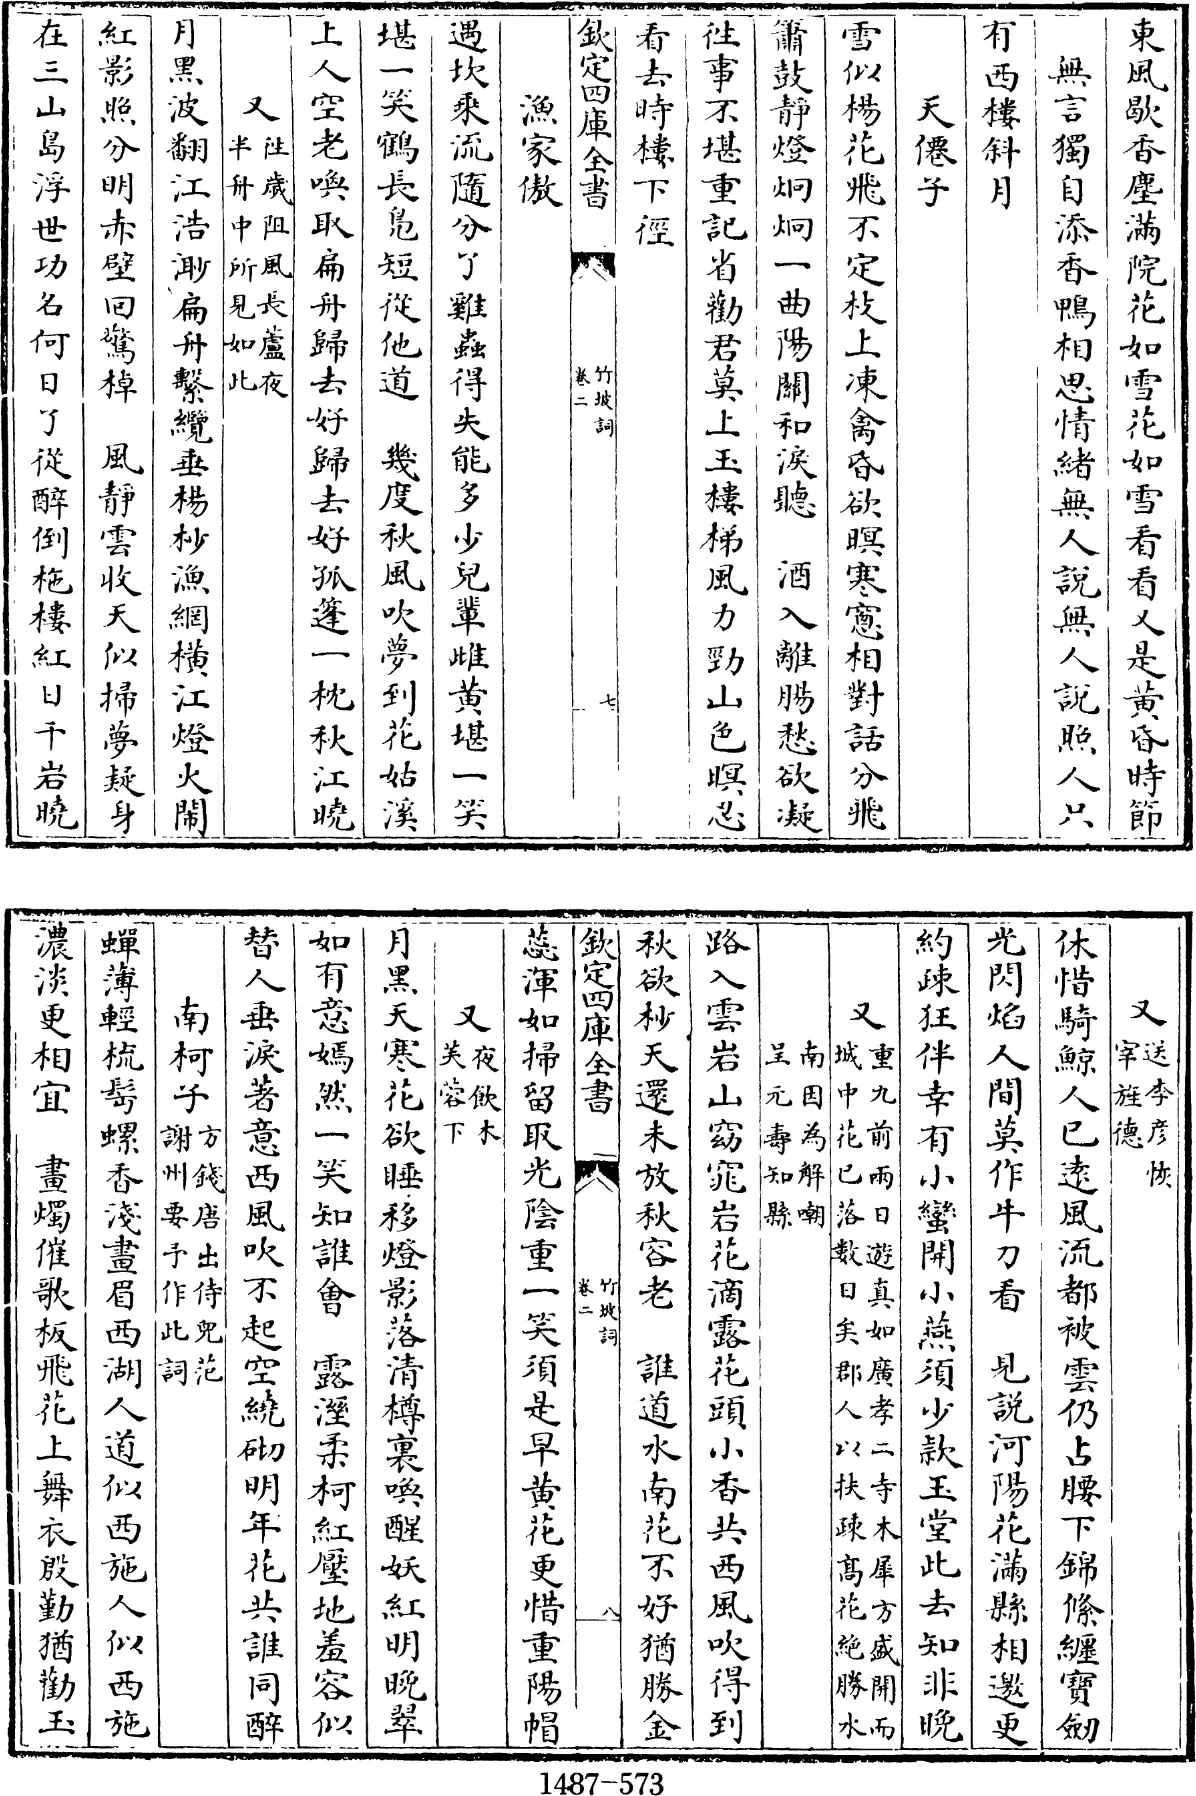 東風歇香塵滿院花如雪花如雪看看又是黃昏時節
無言獨自添香鴨相思情緒無人說無人說照人只
有西樓斜月
天僊子
雪似楊花飛不定枝上凍禽昏欲暝寒窻相對話分飛
簫鼓靜燈炯炯一曲陽關和淚聽　酒入離腸愁欲凝
往事不堪重記省勸君莫上玉樓梯風力勁山色暝忍
看去時樓下徑
欽定四庫全書
竹坡詞
卷二
七
漁家傲
遇坎乘流隨分了雞蟲得失能多少兒輩雌黃堪一笑
堪一笑鶴長鳧短從他道　幾度秋風吹夢到花姑溪
上人空老喚取扁舟歸去好歸去好孤篷一枕秋江曉
又
往歲阻風長蘆夜
半舟中所見如此
月黑波翻江浩渺扁舟繫纜垂楊杪漁網橫江燈火鬧
紅影照分明赤壁回驚棹　風靜雲收天似掃夢疑身
在三山島浮世功名何日了從醉倒柂樓紅日千岩曉
又
送李彦恢
宰旌德
休惜騎鯨人已遠風流都被雲仍占腰下錦絛纏寶劒
光閃焰人間莫作牛刀看　見說河陽花滿縣相邀更
約疎狂伴幸有小蠻開小燕須少款玉堂此去知非晚
又
重九前兩日遊真如廣孝二寺木犀方盛開而
城中花已落數日矣郡人以扶疎髙花絶勝水
南因為解嘲
呈元壽知縣
路入雲岩山窈窕岩花滴露花頭小香共西風吹得到
秋欲杪天還未放秋容老　誰道水南花不好猶勝金
欽定四庫全書
竹坡詞
卷二
八
蕊渾如掃留取光陰重一笑須是早黃花更惜重陽帽
又
夜飲木
芙蓉下
月黑天寒花欲睡移燈影落清樽裏喚醒妖紅明晚翠
如有意嫣然一笑知誰會　露溼柔柯紅壓地羞容似
替人垂淚著意西風吹不起空繞砌明年花共誰同醉
南柯子
方錢唐出侍兒范
謝州要予作此詞
蟬薄輕梳髩螺香淺畫眉西湖人道似西施人似西施
濃淡更相宜　畫燭催歌板飛花上舞衣殷勤猶勸玉
1487-573